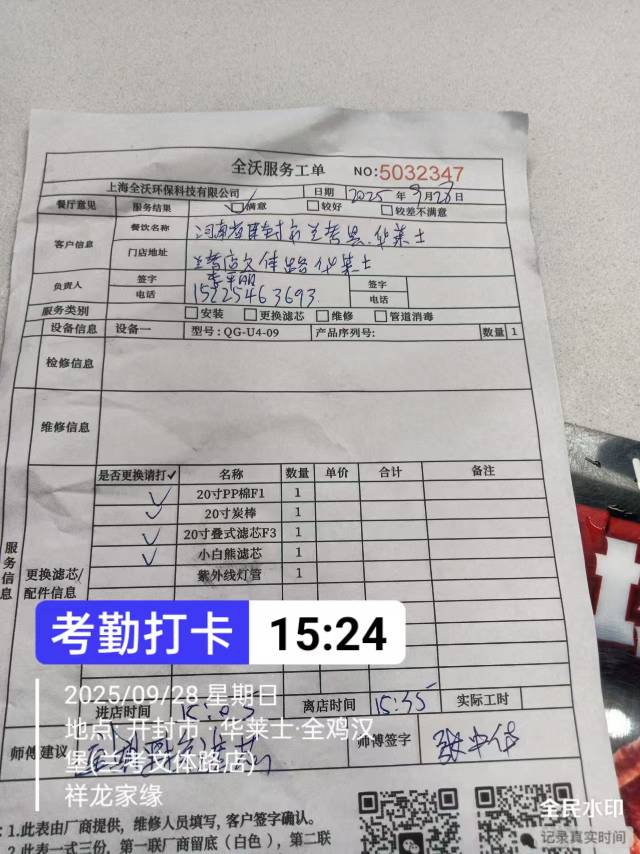 全沃服务工单 NO:5032347
上海全沃环保科技有限公司 日期 2025年9月28日
餐厅意见 服务结果 ✓满意 较好 较差不满意
客户信息 餐饮名称 河南省开封市兰考县华莱士
门店地址 兰考店文体路华莱士
负责人 签字 签字
电话 15225463693 电话
服务类别 安装 更换滤芯 维修 管道消毒
设备信息 设备一 型号:QG-U4-09 产品序列号: 数量 1
检修信息
维修信息
服务信息
更换滤芯/配件信息
是否更换请打✓ 名称 数量 单价 合计 备注
✓ 20寸PP棉F1 1
✓ 20寸炭棒 1
✓ 20寸叠式滤芯F3 1
✓ 小白熊滤芯 1
紫外线灯管 1
考勤打卡 15:24
2025/09/28 星期日
地点:开封市·华莱士·全鸡汉
堡(兰考文体路店)
祥龙家缘
进店时间 离店时间 15:35 实际工时
师傅建议 师傅签字
:1.此表由厂商提供, 维修人员填写, 客户签字确认。
2.此表一式三份, 第一联厂商留底(白色), 第二联
全民水印
记录真实时间